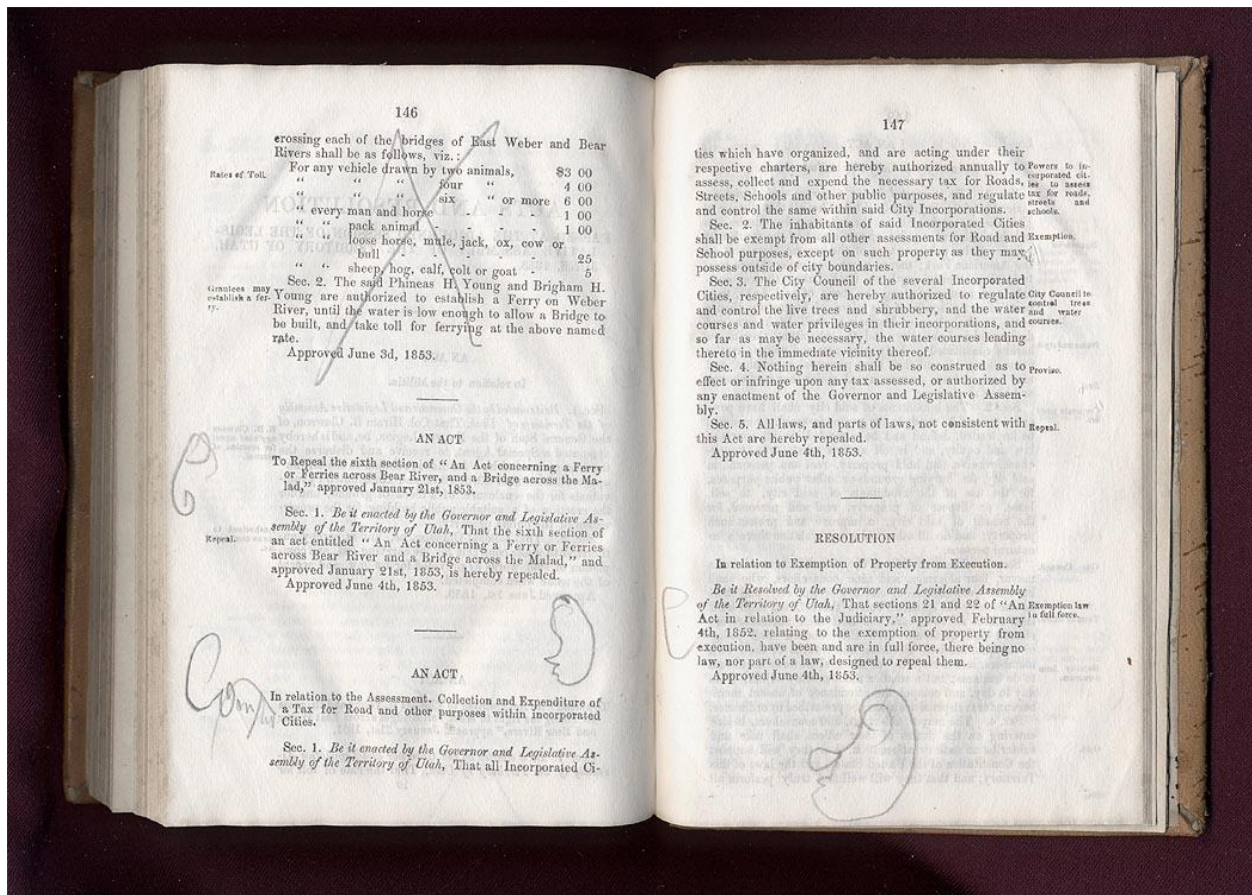 146
crossing each of the bridges of East Weber and Bear
Rivers shall be as follows, viz.:
Rates of Toll.
For any vehicle drawn by two animals, $3 00
“ “ “ four “ 4 00
“ “ “ six “ or more 6 00
“ every man and horse - - - 1 00
“ “ pack animal - - - - 1 00
“ “ loose horse, mule, jack, ox, cow or
bull - - - - - 25
“ “ sheep, hog, calf, colt or goat - 5
Grantees may
establish a fer-
ry.
Sec. 2. The said Phineas H. Young and Brigham H.
Young are authorized to establish a Ferry on Weber
River, until the water is low enough to allow a Bridge to
be built, and take toll for ferrying at the above named
rate.
Approved June 3d, 1853.
AN ACT
To Repeal the sixth section of “An Act concerning a Ferry
or Ferries across Bear River, and a Bridge across the Ma-
lad,” approved January 21st, 1853.
Repeal.
Sec. 1. Be it enacted by the Governor and Legislative As-
sembly of the Territory of Utah, That the sixth section of
an act entitled “An Act concerning a Ferry or Ferries
across Bear River and a Bridge across the Malad,” and
approved January 21st, 1853, is hereby repealed.
Approved June 4th, 1853.
AN ACT
In relation to the Assessment. Collection and Expenditure of
a Tax for Road and other purposes within incorporated
Cities.
Sec. 1. Be it enacted by the Governor and Legislative As-
sembly of the Territory of Utah, That all Incorporated Ci-
147
ties which have organized, and are acting under their
respective charters, are hereby authorized annually to
assess, collect and expend the necessary tax for Roads,
Streets, Schools and other public purposes, and regulate
and control the same within said City Incorporations.
Powers to in-
corporated cit-
ies to assess
tax for roads,
streets and
schools.
Sec. 2. The inhabitants of said Incorporated Cities
shall be exempt from all other assessments for Road and
School purposes, except on such property as they may
possess outside of city boundaries.
Exemption.
Sec. 3. The City Council of the several Incorporated
Cities, respectively, are hereby authorized to regulate
and control the live trees and shrubbery, and the water
courses and water privileges in their incorporations, and
so far as may be necessary, the water courses leading
thereto in the immediate vicinity thereof.
City Council to
control trees
and water
courses.
Sec. 4. Nothing herein shall be so construed as to
effect or infringe upon any tax assessed, or authorized by
any enactment of the Governor and Legislative Assem-
bly.
Proviso.
Sec. 5. All laws, and parts of laws, not consistent with
this Act are hereby repealed.
Repeal.
Approved June 4th, 1853.
RESOLUTION
In relation to Exemption of Property from Execution.
Be it Resolved by the Governor and Legislative Assembly
of the Territory of Utah, That sections 21 and 22 of “An
Act in relation to the Judiciary,” approved February
4th, 1852. relating to the exemption of property from
execution, have been and are in full force, there being no
law, nor part of a law, designed to repeal them.
Exemption law
in full force.
Approved June 4th, 1853.